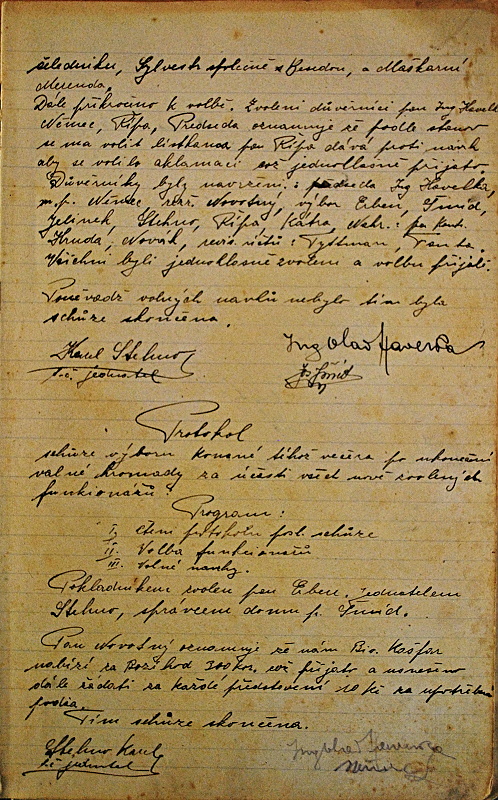 Sylvestr společně s Besedou, a Maškarní
Merenda.
Dále přikročeno k volbě. Zvoleni důvěrníci pan Ing Havelka
Němec, Řípa, Předseda oznamuje že podle stanov
se má volit lístkama pan Řípa dává proti návrh
aby se volilo aklamací což jednohlasně přijato.
Důvěrníky byly navrženi: předseda Ing Havelka,
m.p. Němec, Novotný, výbor Erben, Šmíd,
Jelínek, Stehno, Řípa, Kátra, Náhr.: pan
Hruda, Novák, revis. účtů:
Všichni byli jednohlasně zvoleni a volbu přijali.
Poněvadž volných návrhů nebylo tím byla
schůze skončena.
Karel Stehno Ing Havelka
t.č. jednatel
Protokol
schůze výboru konané téhož večera po ukončení
valné hromady za účasti všech nově zvolených
funkionářů.
Program:
I. Čtení protokolu posl. schůze
II. Volba funkcionářů
III. Volné návrhy.
Pokladníkem zvolen pan Erben, jednatelem
Stehno, správcem domu p. Šmíd.
Pan Novotný oznamuje že nám Bio. Kašpar
nabízí za 300 Kor. což přijato a usneseno
dále žádati za každé představení 10 Kč za
Tím schůze skončena.
Stehno Karel
t.č. jednatel